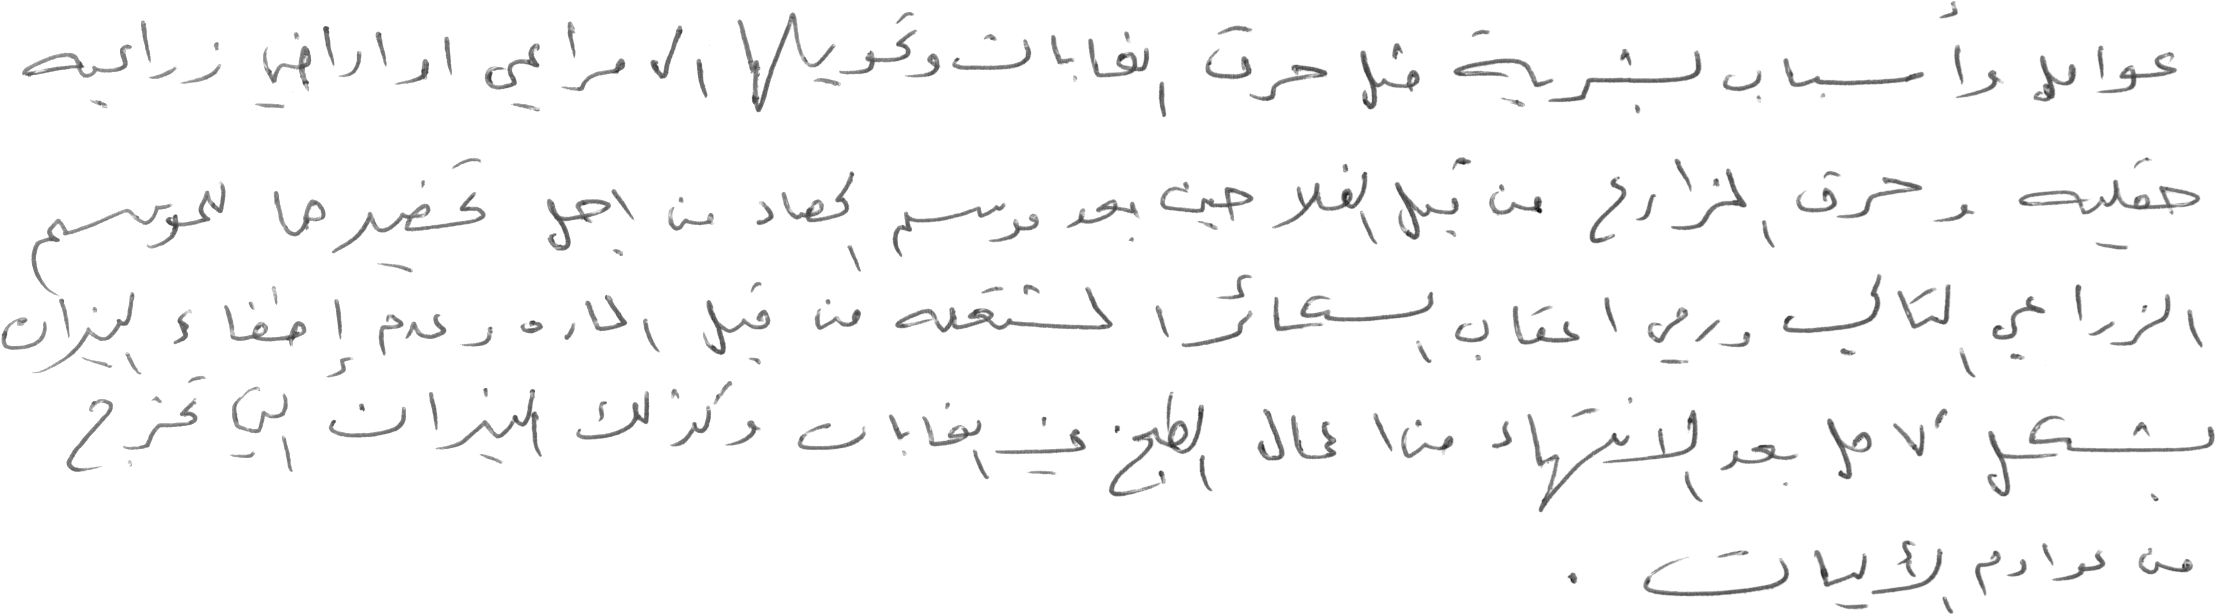 عوامل وأسباب بشرية مثل حرق الغابات وتحويلها الى مراعي او اراضي زراعيه
حقليه وحرق المزارع من قبل الفلاحين بعد موسم الحصاد من اجل تحضيرها للموسم
الزراعي التالي ورمي اعقاب السكائر المشتعله من قبل الماره وعدم إطفاء النيران
بشكل كامل بعد الانتهاء من اعمال الطبخ في الغابات وكذلك النيران التي تخرج
من عوادم الأليات .